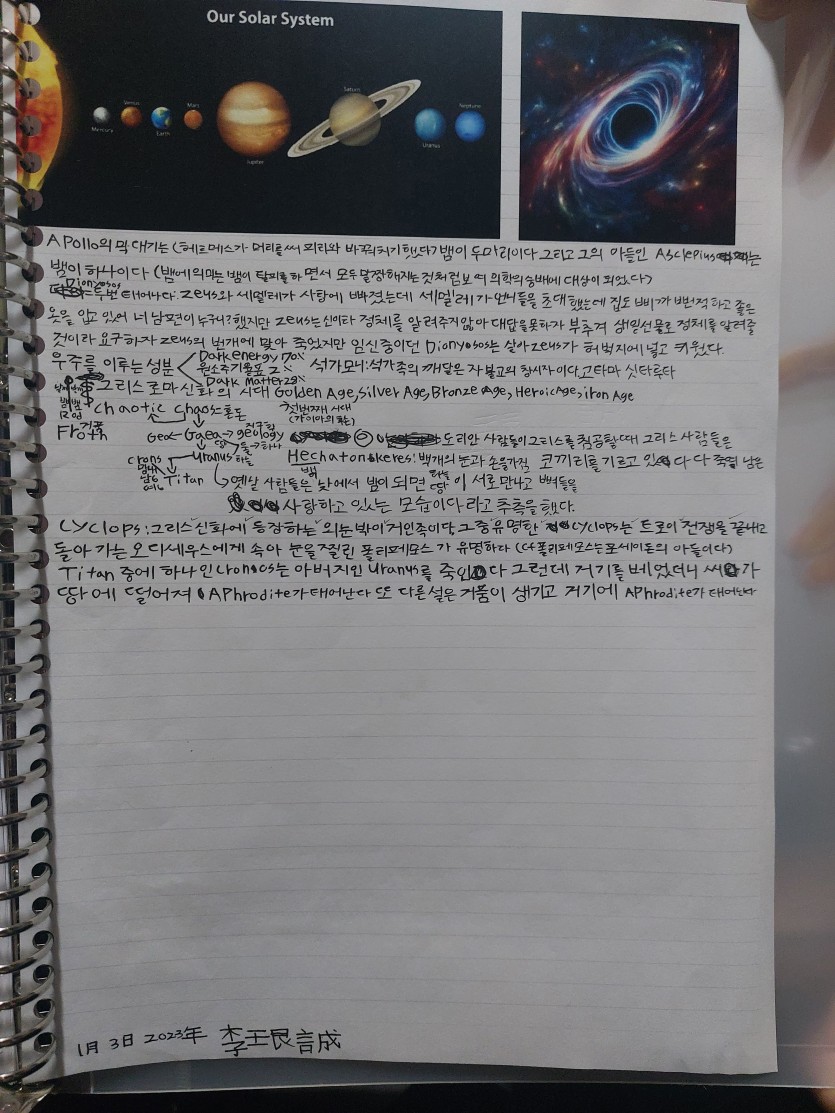 Our Solar System
Mercury
Venus
Earth
Mars
Jupiter
Saturn
Uranus
Neptune
Apollo의 막대기는 (헤르메스가 머리를써 피리와 바꿔치기했다) 뱀이 두마리이다 그리고 그의 아들인 Asclepius는
뱀이 하나이다 (뱀에의미는 뱀이 탈피를 하면서 모두 말짱해지는 것처럼보여 의학의 숭배에 대상이 되었다)
Dionyosos
두번 태어나다: Zeus와 세멜레가 사랑에 빠졌는데 세멜레가 언니들을 초대했는데 집도 삐까 번쩍하고 좋은
옷을 입고 있어 네 남편이 누구니? 했지만 Zeus는 신이라 정체를 알려주지않아 대답을못하가 부추겨 생일선물로 정체를 알려줄
것이라 요구하자 Zeus의 번개에 맞아 죽었지만 임신중이던 Dionyosos는 살아 Zeus가 허벅지에 넣고 키웠다.
우주를 이루는 성분
Dark energy 70%
원소주기율표 2%
Dark Matter 28%
석가모니: 석가족의 깨달은 자 불교의 창시자이다. 고타마 싯타루타
그리스로마신화의 시대 Golden Age, Silver Age, Bronze Age, Heroic Age, iron Age
Rod
chaotic chaos 혼돈
첫번째 시대
Froth 거품
Geo Gaea → geology 지구학
도리와 사람들이 그리스를 침공할때 그리스 사람들은
crons
uranus 하늘
Hechatonskeres: 백개의 눈과 손을가진 코끼리를 기르고 있다 다 죽 남은
백
Titan
옛날 사람들은 낮에서 밤이 되면 땅 이 서로 만나고 뼈들을
하늘
사랑하고 있는 모습이다 라고 추측을 했다.
Cyclops: 그리스신화에 등장하는 외눈박이 거인족이다, 그중 유명한 cyclops는 트로이 전쟁을 끝내고
돌아 가는 오디세우스에게 속아 눈을 찔린 폴리페모스가 유명하다 (cf 폴리페모스는 포세이돈의 아들이다)
Titan 중에 하나인 Cronocs는 아버지인 Uranus를 죽인다 그런데 거기를 베었더니 씨가
땅에 떨어져 Aphrodite가 태어난다 또 다른 설은 거품이 생기고 거기에 Aphrodite가 태어난다
1月 3日 2023年 李王艮言成